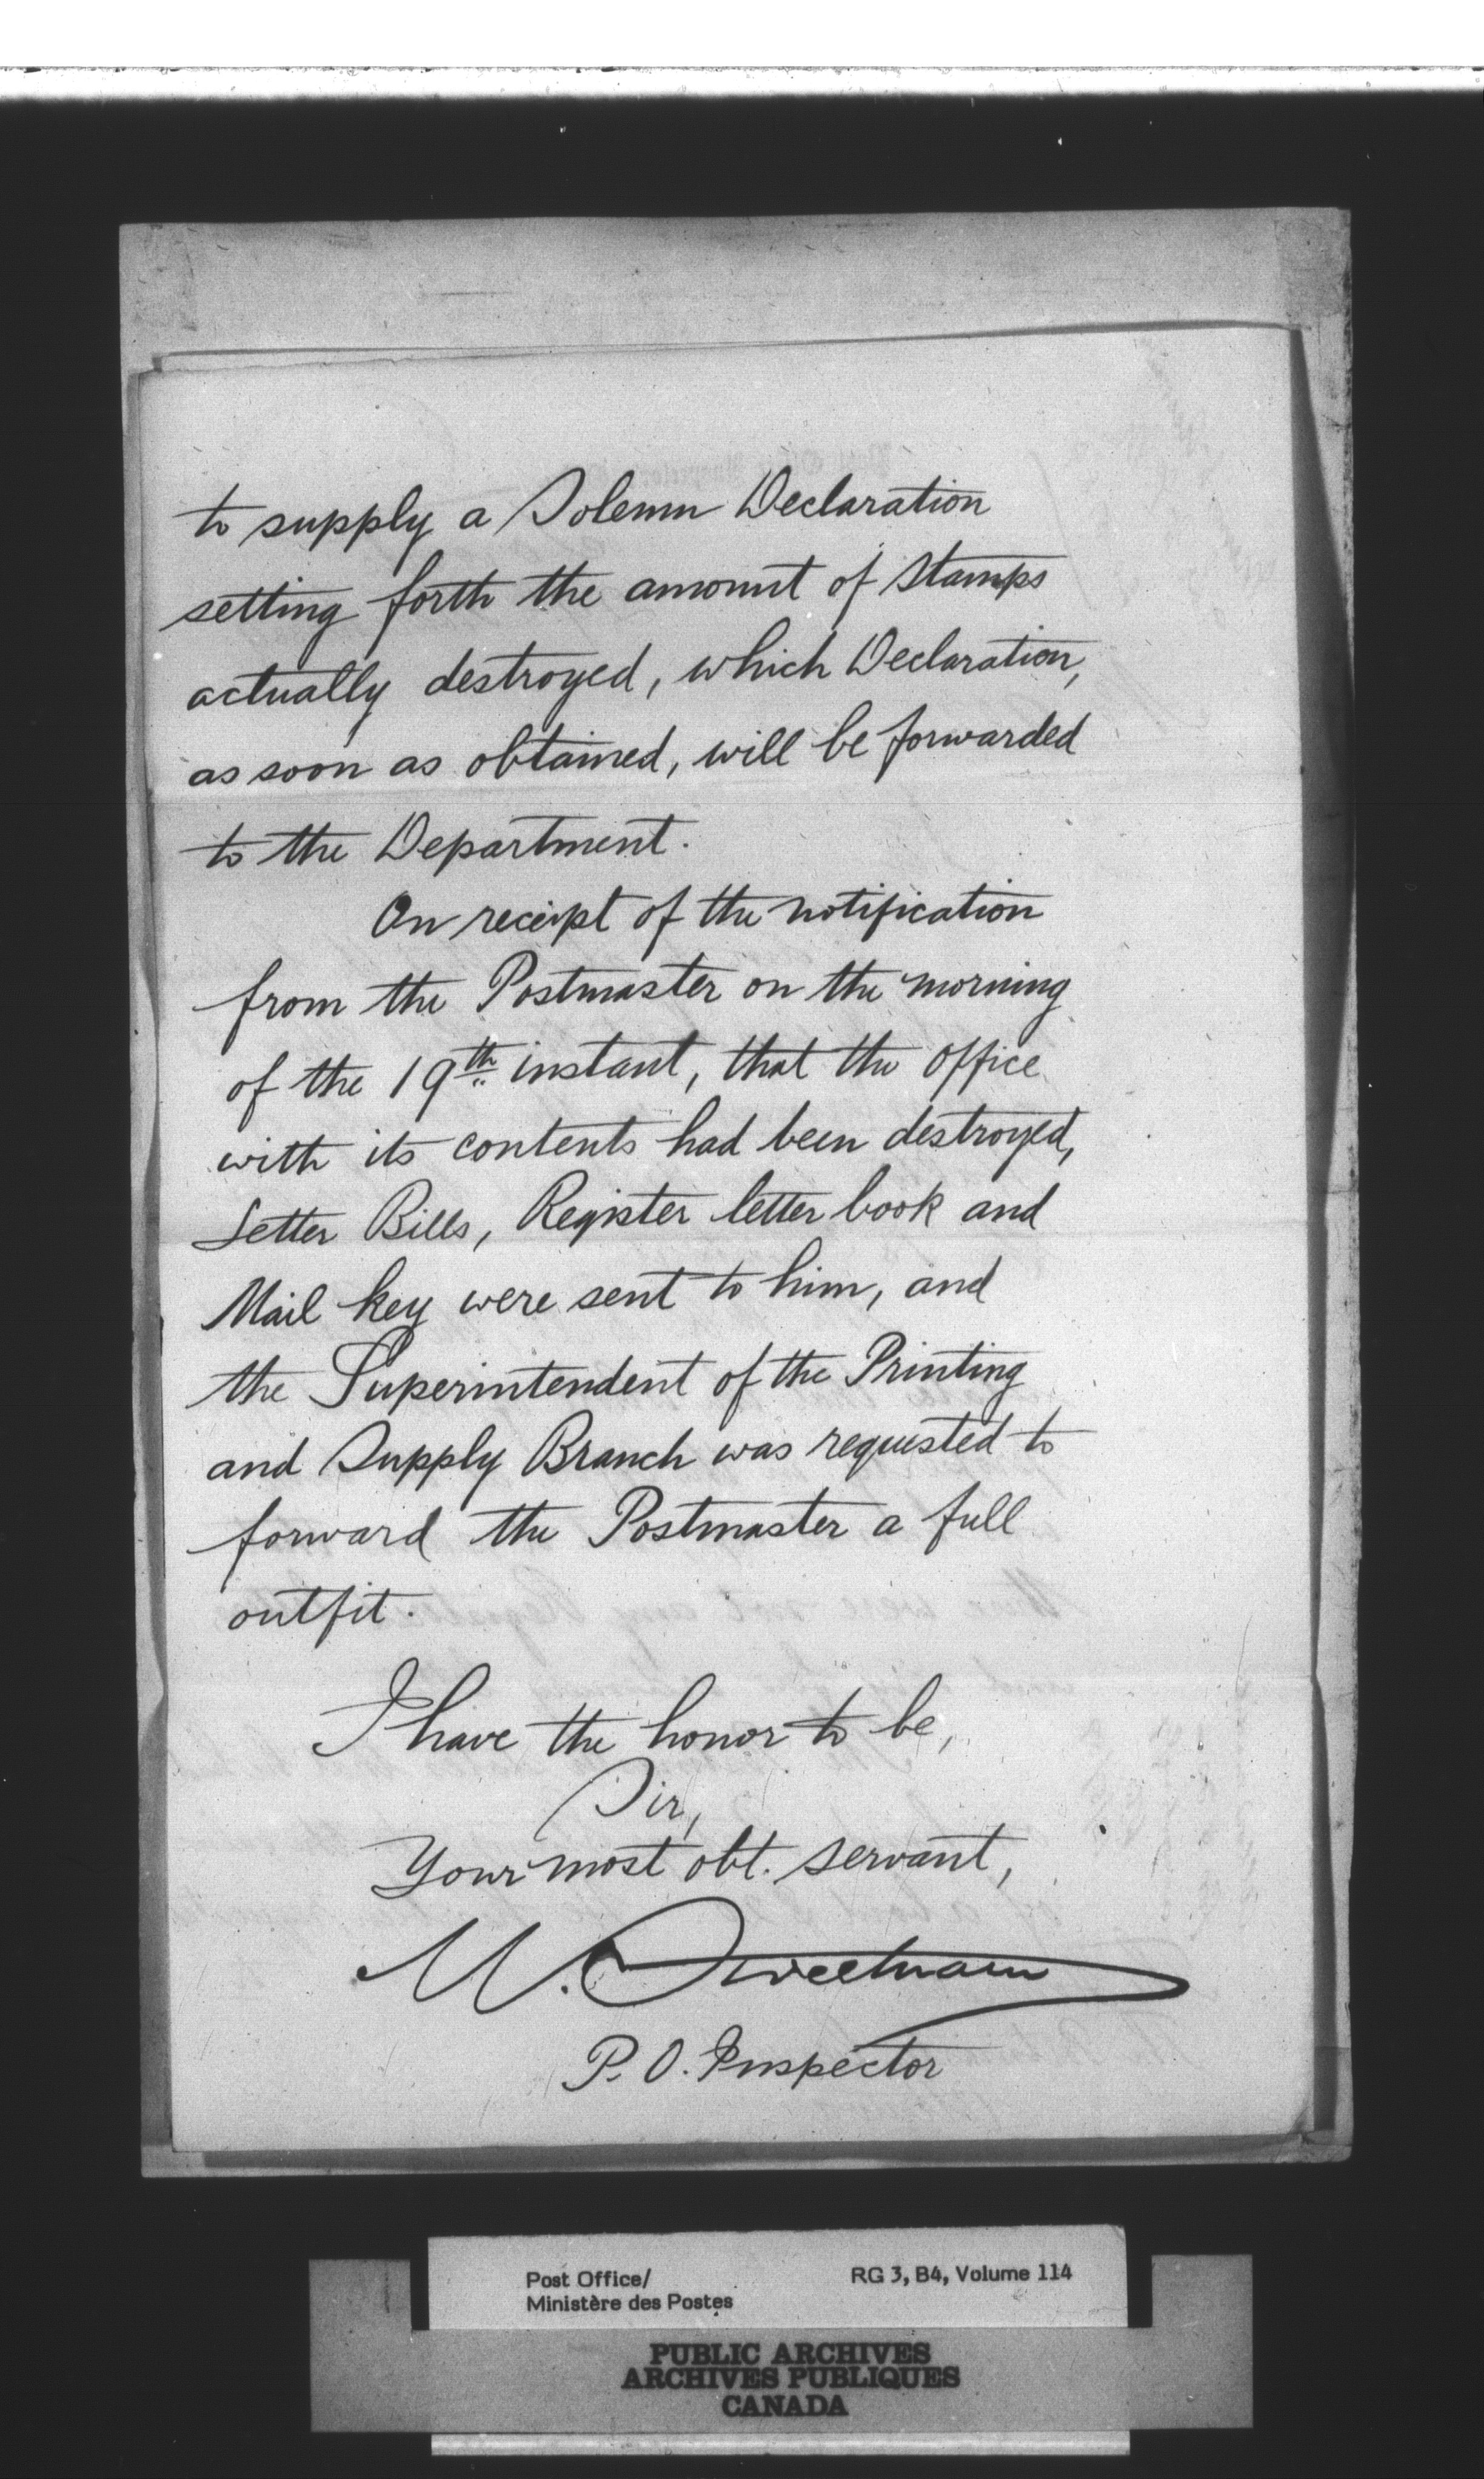 to supply a Solemn Declaration
setting forth the amount of Stamps
actually destroyed, which Declaration,
as soon as obtained, will be forwarded
to the Department.
On receipt of the notification
from the Postmaster on the morning
of the 19th instant, that the office
with its contents had been destroyed,
Letter Bills, Register letter book and
Mail key were sent to him, and
the Superintendent of the Printing
and Supply Branch was requested to
forward the Postmaster a full
outfit.
I have the honor to be,
Sir,
Your most obt. servant,
M. Sweetnam
P.O. Inspector
Post Office/ RG 3, B4, Volume 114
Ministère des Postes
PUBLIC ARCHIVES
ARCHIVES PUBLIQUES
CANADA